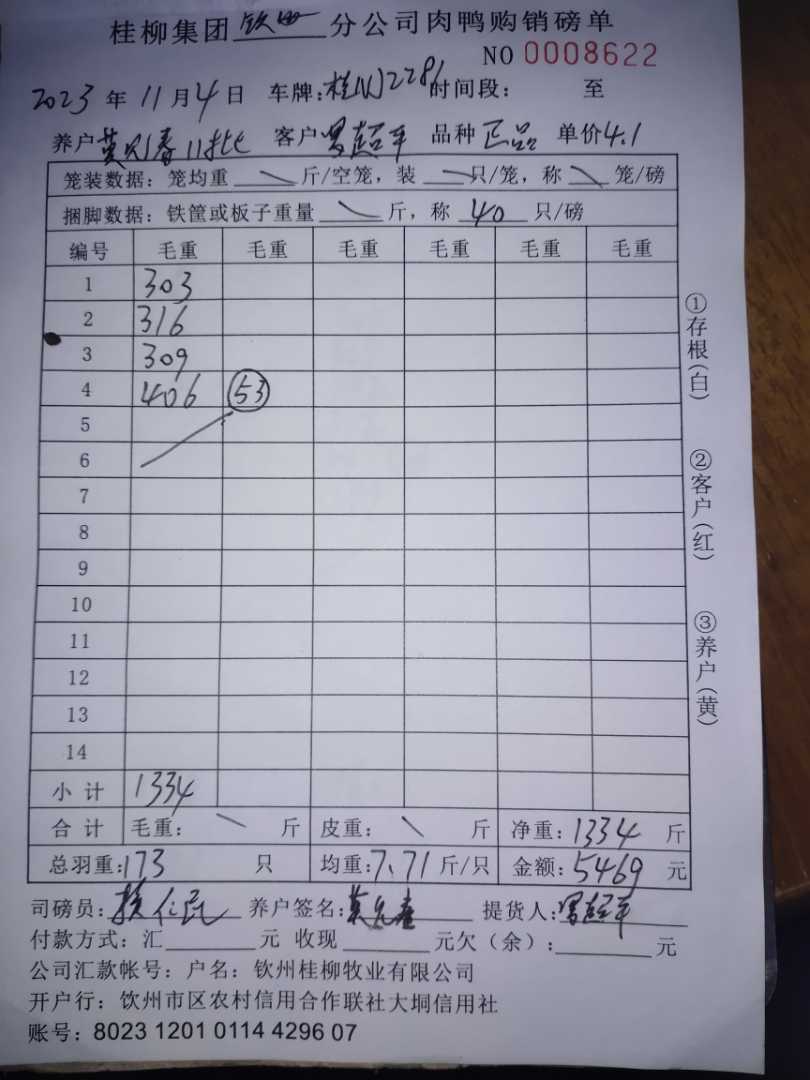 桂柳集团 钦州 分公司肉鸭购销磅单
NO 0008622
2023 年 11 月 4 日 车牌: 桂N2281 时间段: 至
养户 莫 春 11批 客户 超平 品种 正品 单价 4.1
笼装数据: 笼均重 \ 斤/空笼, 装 \ 只/笼, 称 \ 笼/磅
捆脚数据: 铁筐或板子重量 \ 斤, 称 40 只/磅
编号 毛重 毛重 毛重 毛重 毛重 毛重
1 303
2 316
3 309
4 406 53
5
6
7
8
9
10
11
12
13
14
小计 1334
合计 毛重: \ 斤 皮重: \ 斤 净重: 1334 斤
总羽重: 173 只 均重: 7.71 斤/只 金额: 5469 元
司磅员: 仁 养户签名: 莫 提货人: 超平
付款方式: 汇 元 收现 元欠(余): 元
公司汇款帐号: 户名: 钦州桂柳牧业有限公司
开户行: 钦州市区农村信用合作联社大垌信用社
账号: 8023 1201 0114 4296 07
①存根(白)
②客户(红)
③养户(黄)